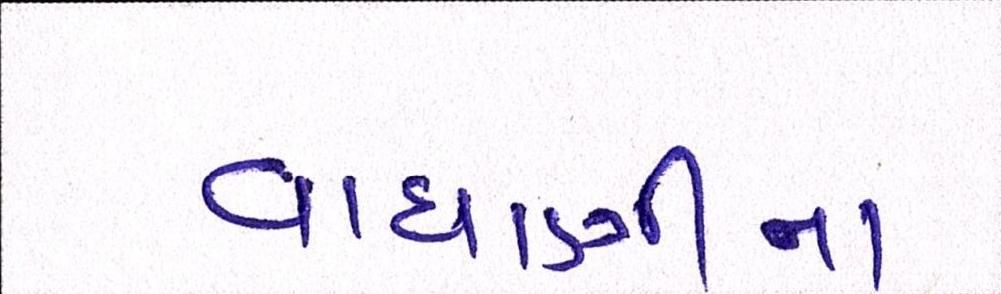 વાઘાણીના